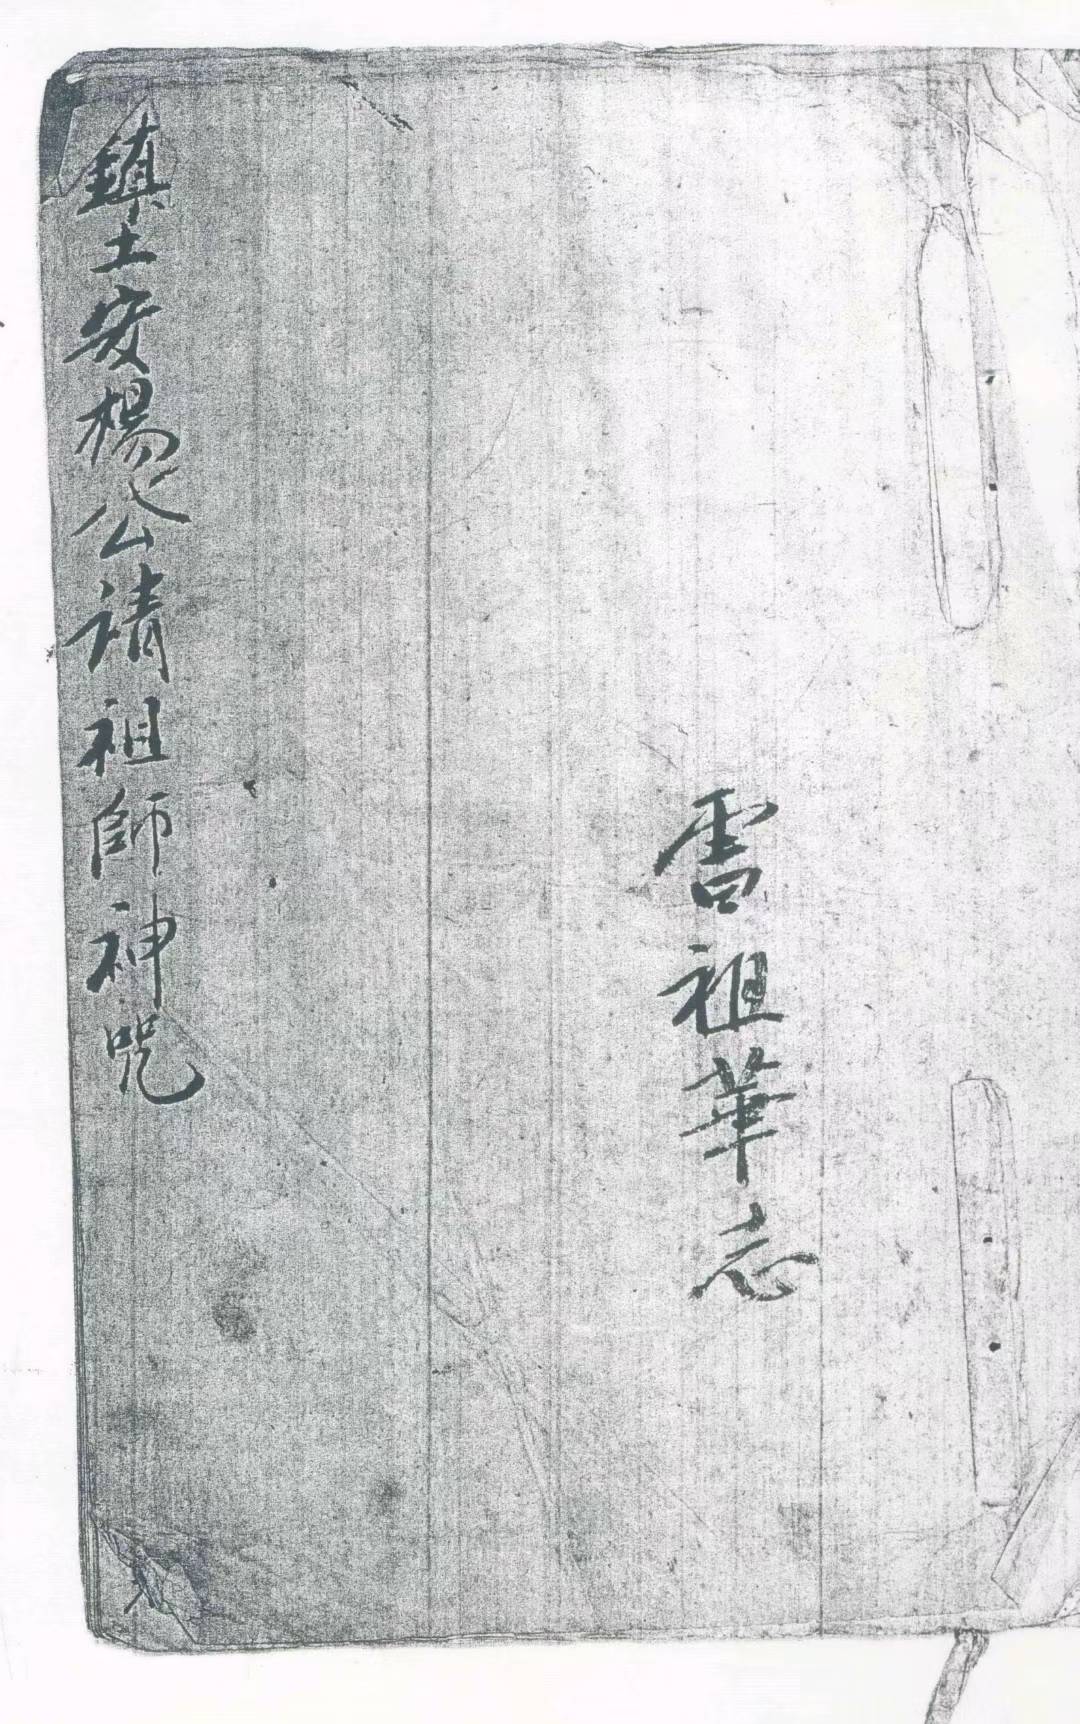 雷祖華志
鎮土安楊公請祖師神咒